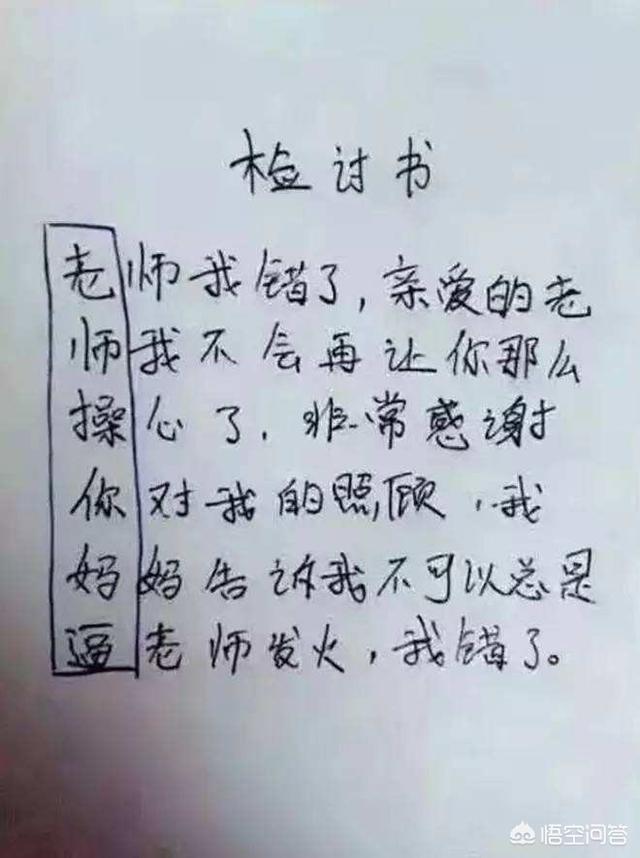 检讨书
老师我错了,亲爱的老
师我不会再让你那么
操心了.非常感谢
你对我的照顾,我
妈妈告诉我不可以总是
逼老师发火,我错了。
悟空问答